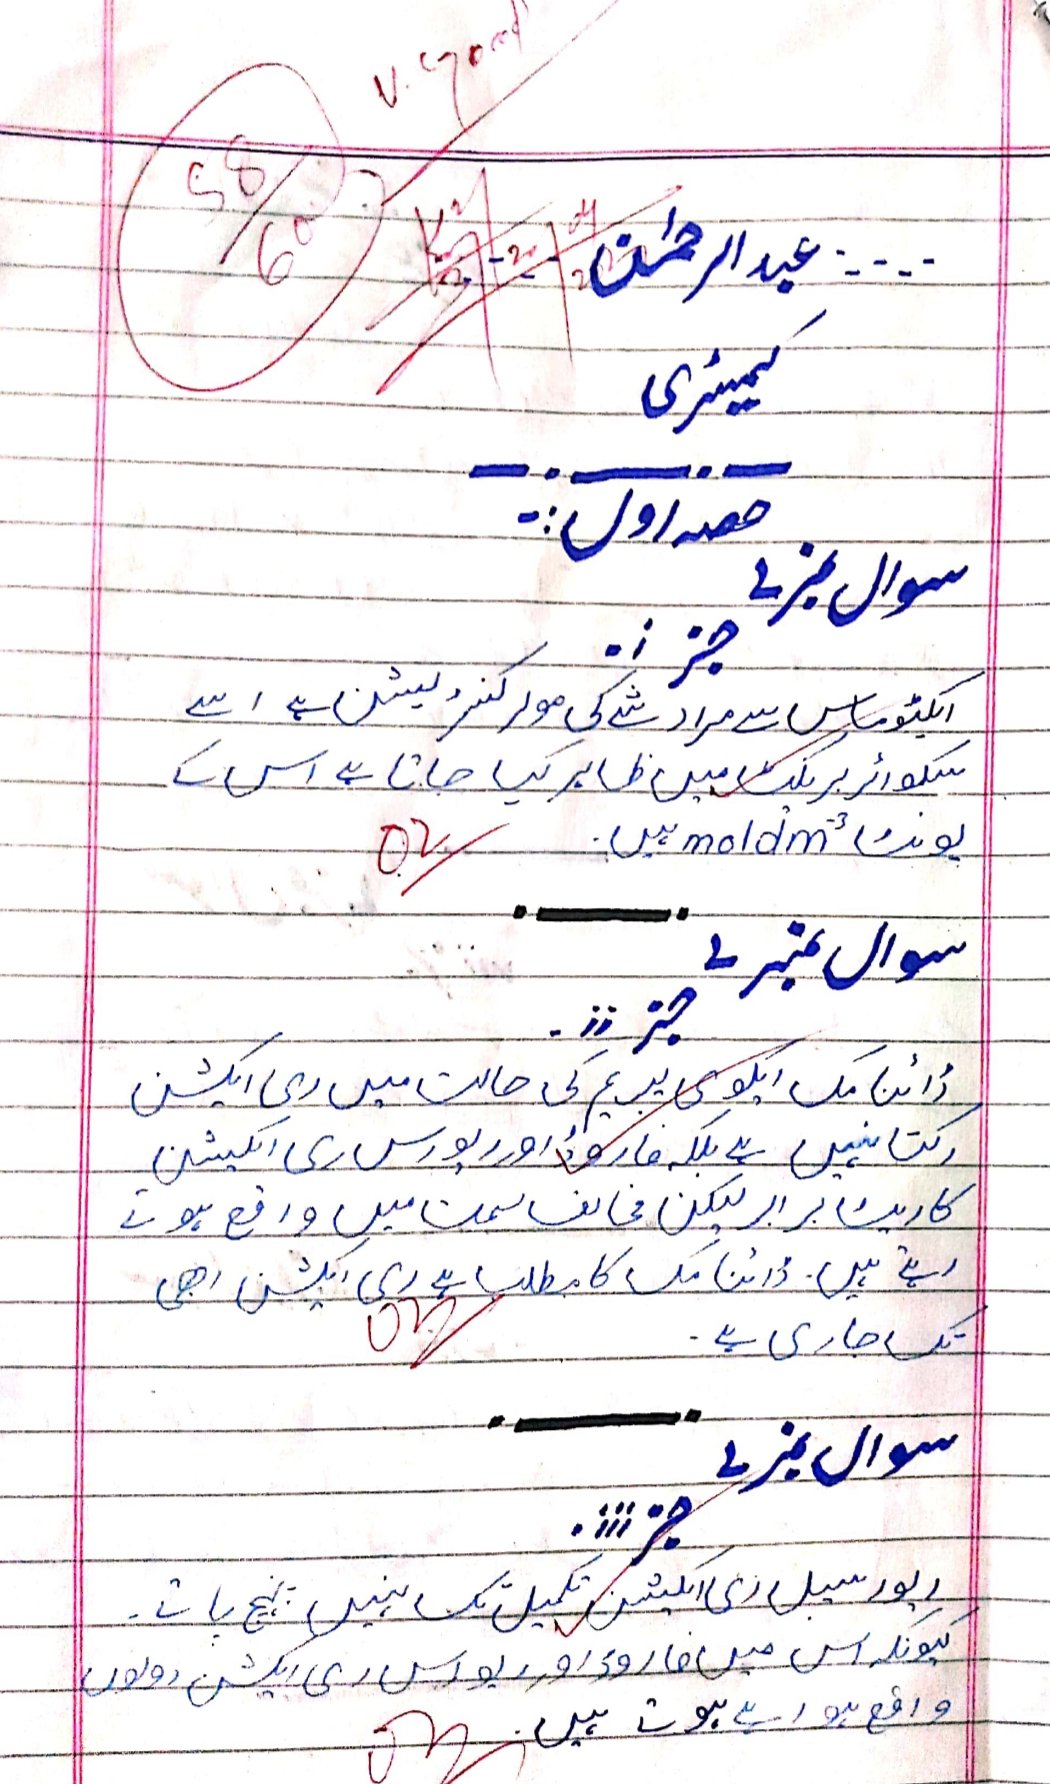 V. Good
58/60
عبدالرحمٰن
کیمسٹری
حصہ اول:-
سوال نمبر ۲
جز i.
ایکٹو ماس سے مراد شے کی مولر کنسنٹریشن ہے اسے
سکوائر بریکٹ میں ظاہر کیا جاتا ہے اس کے
یونٹ moldm⁻³ ہیں.
02
سوال نمبر ۲
جز ii.
ڈائنامک ایکوی لبریم کی حالت میں ری ایکشن
رکتا نہیں ہے بلکہ فارورڈ اور ریورس ری ایکشن
کا ریٹ برابر لیکن مخالف سمت میں واقع ہوتے
رہتے ہیں. ڈائنامک کا مطلب ہے ری ایکشن ابھی
تک جاری ہے.
02
سوال نمبر ۲
جز iii.
ریورسیبل ری ایکشن تکمیل تک نہیں پہنچ پاتے.
کیونکہ اس میں فارورڈ اور ریورس ری ایکشن دونوں
واقع ہو رہے ہوتے ہیں.
02